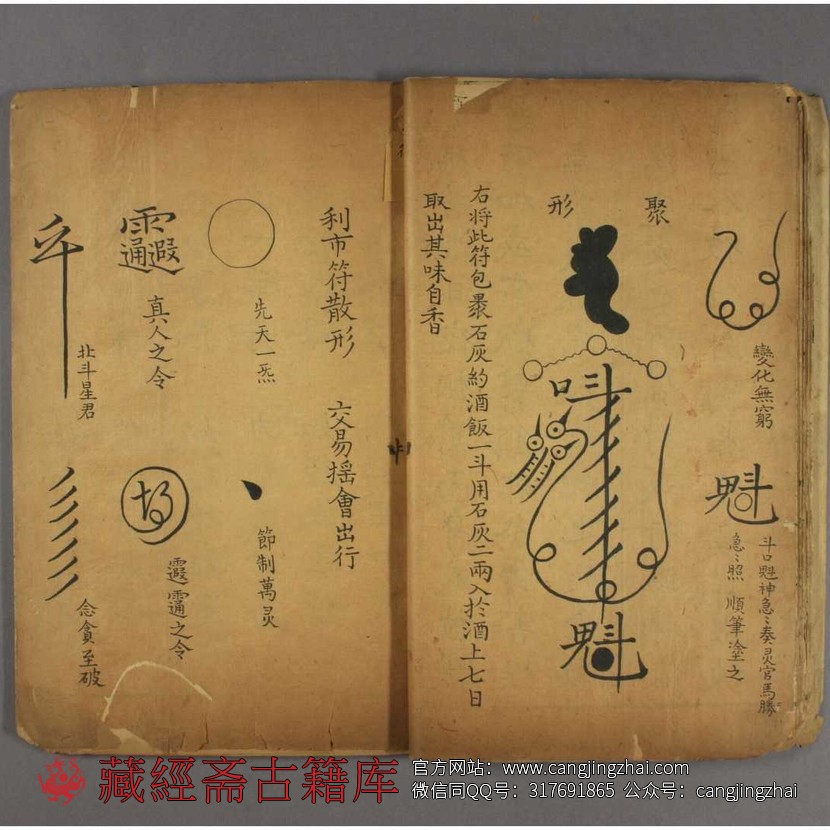 變化無窮
魁
斗口魁神急〻奏灵官馬勝
急〻照 順筆塗之
聚形
魁
右將此符包褁石灰約酒飯一斗用石灰二兩入於酒上七日
取出其味自香
利市符散形 交易摇會出行
先天一炁
節制萬灵
真人之令
霞靊之令
北斗星君
念貪至破
藏經斋古籍库
官方网站：www.cangjingzhai.com
微信同QQ号：317691865 公众号：cangjingzhai